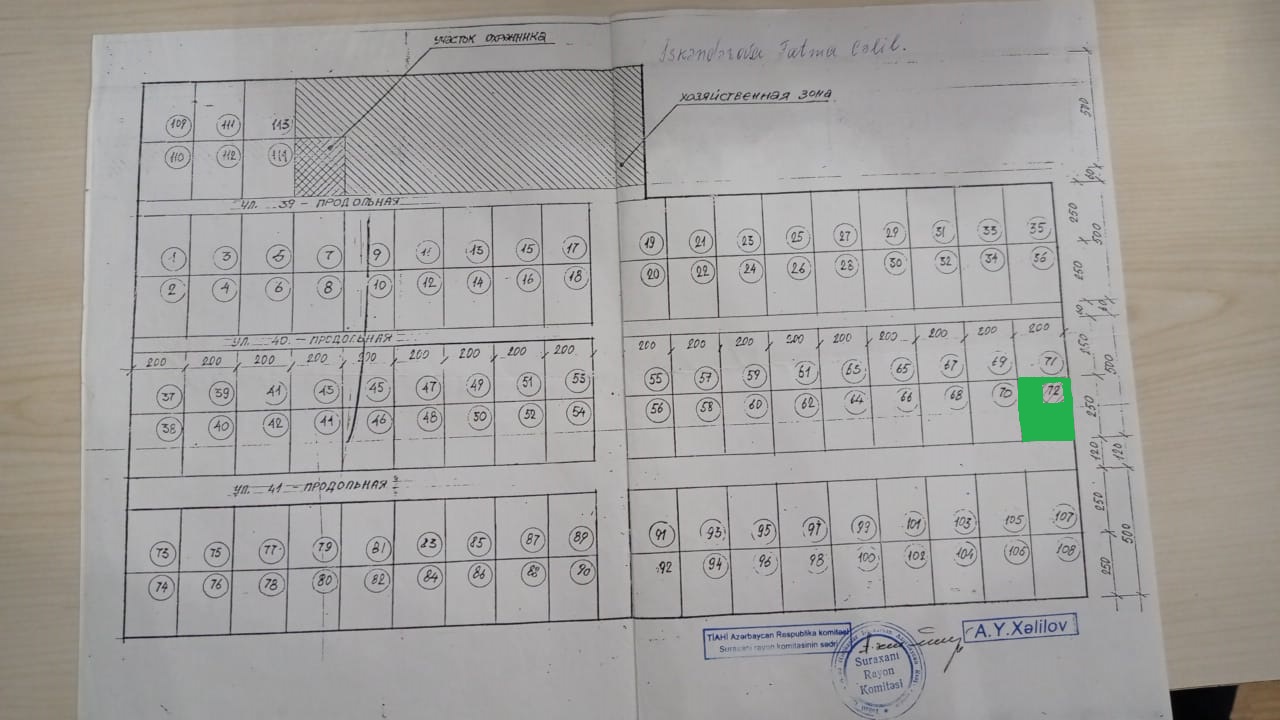 участок охранника
İskəndərova Fatma Cəlil.
хозяйственная зона
500
109 111 113
110 112 114
60
ул. 39 - продольная
250 500
1 3 5 7 9 11 13 15 17 19 21 23 25 27 29 31 33 35
2 4 6 8 10 12 14 16 18 20 22 24 26 28 30 32 34 36
250
60 60
ул. 40 - продольная
200 200 200 200 200 200 200 200 200 200 200 200 200 200 200 200 200 200
250 500
37 39 41 43 45 47 49 51 53 55 57 59 61 63 65 67 69 71
38 40 42 44 46 48 50 52 54 56 58 60 62 64 66 68 70 72
250
120 120
ул. 41 - продольная
250 500
73 75 77 79 81 83 85 87 89 91 93 95 97 99 101 103 105 107
74 76 78 80 82 84 86 88 90 92 94 96 98 100 102 104 106 108
250
TİAHİ Azərbaycan Respublika komitəsi
Suraxanı rayon komitəsinin sədri
A.Y.Xəlilov
Suraxanı
Rayon
Komitəsi